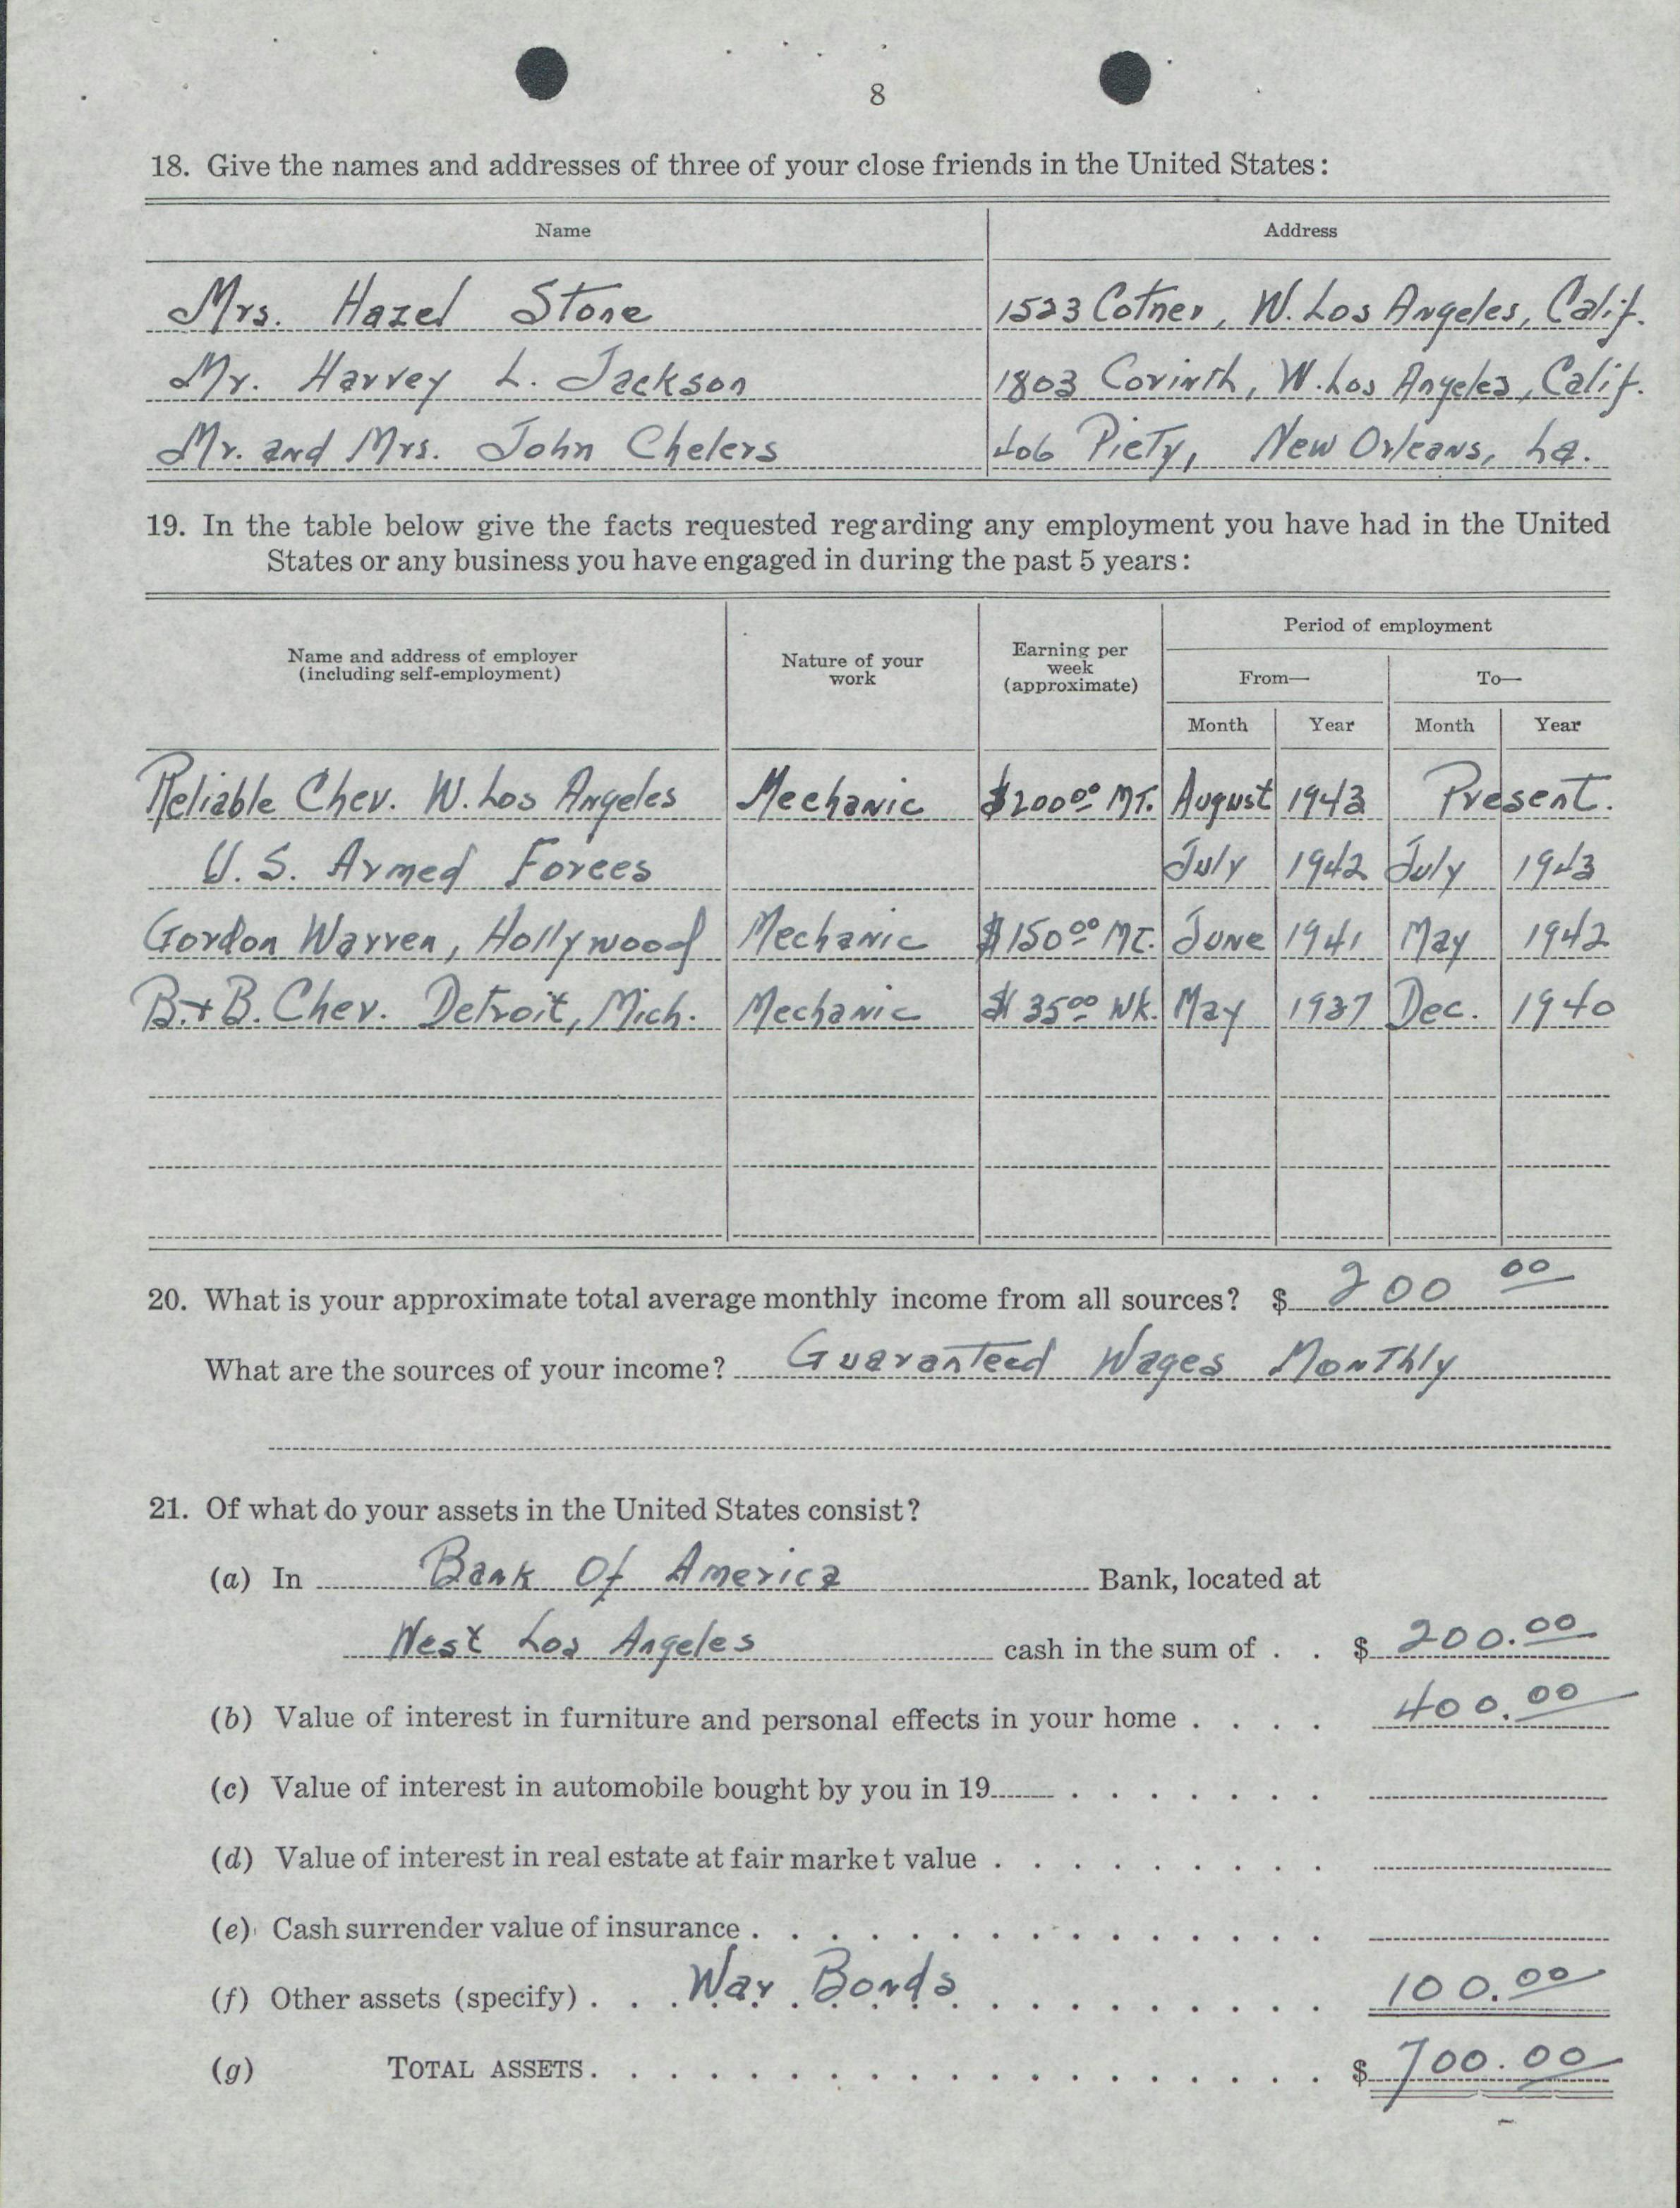 8
18. Give the names and addresses of three of your close friends in the United States:
Name Address
Mrs. Hazel Stone 1523 Cotner, W. Los Angeles, Calif.
Mr. Harvey L. Jackson 1803 Corinth, W. Los Angeles, Calif.
Mr. and Mrs. John Chelers 406 Piety, New Orleans, La.
19. In the table below give the facts requested regarding any employment you have had in the United
States or any business you have engaged in during the past 5 years:
Name and address of employer
(including self-employment)
Nature of your
work
Earning per
week
(approximate)
Period of employment
From— To—
Month Year Month Year
Reliable Chev. W. Los Angeles Mechanic $200.00 MT. August 1943 Present.
U. S. Armed Forces July 1942 July 1943
Gordon Warren, Hollywood Mechanic $150.00 MT. June 1941 May 1942
B.+B. Chev. Detroit, Mich. Mechanic $35.00 WK. May 1937 Dec. 1940
20. What is your approximate total average monthly income from all sources? $ 200 00
What are the sources of your income? Guaranteed Wages Monthly
21. Of what do your assets in the United States consist?
(a) In Bank Of America Bank, located at
West Los Angeles cash in the sum of . . $ 200.00
(b) Value of interest in furniture and personal effects in your home . . . . 400.00
(c) Value of interest in automobile bought by you in 19 . . . . . . .
(d) Value of interest in real estate at fair market value . . . . . . . . .
(e) Cash surrender value of insurance . . . . . . . . . . . . . . .
(f) Other assets (specify) . . . War Bonds . . . . . . . . . . 100.00
(g) TOTAL ASSETS . . . . . . . . . . . . . . . . . . . $ 700.00